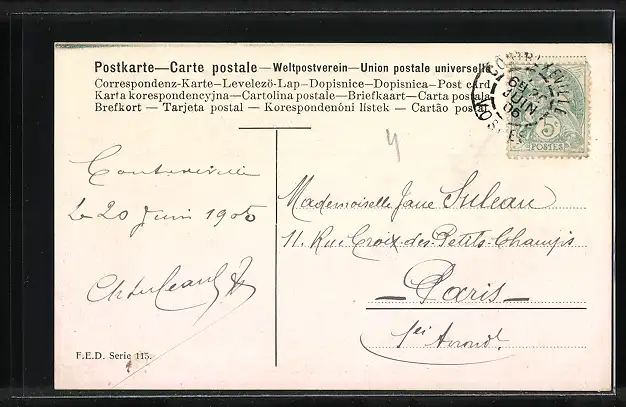 Postkarte—Carte postale—Weltpostverein—Union postale universelle
Correspondenz-Karte—Levelező-Lap—Dopisnice—Dopisnica—Post card
Karta korespondencyjna—Cartolina postale—Briefkaart—Carta postala
Brefkort — Tarjeta postal — Korespondenóni lístek — Cartão postal
CONTREXÉVILLE
JUIN
06
VOSGES
5
POSTES
Contrexéville
Le 20 Juin 1906
Mademoiselle Jane Suleau
11. Rue Croix-des-Petits-Champs
Paris
1er Arrondt.
F.E.D. Serie 115.